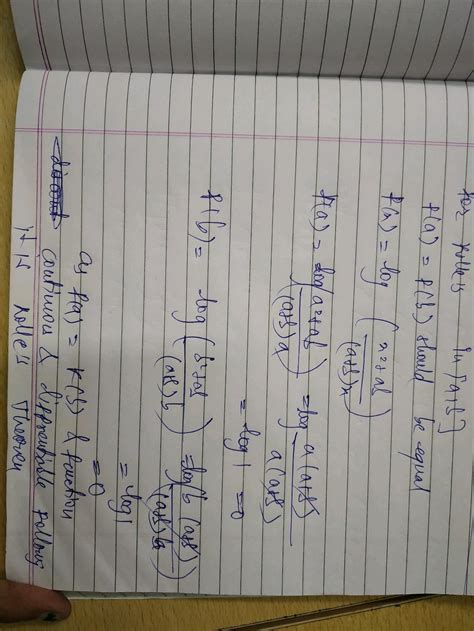 for rolle's in [a,b]
f(a) = f(b) should be equal
f(x) = log (x²+ab / (a+b)x)
f(a) = log (a²+ab / (a+b)a) = log a(a+b) / a(a+b)
= log 1 = 0
f(b) = log (b²+ab / (a+b)b) = log (b(a+b) / (a+b)b)
= log 1
= 0
as f(a) = f(b) & function
continuous & differentiable follows
it is rolles theorem